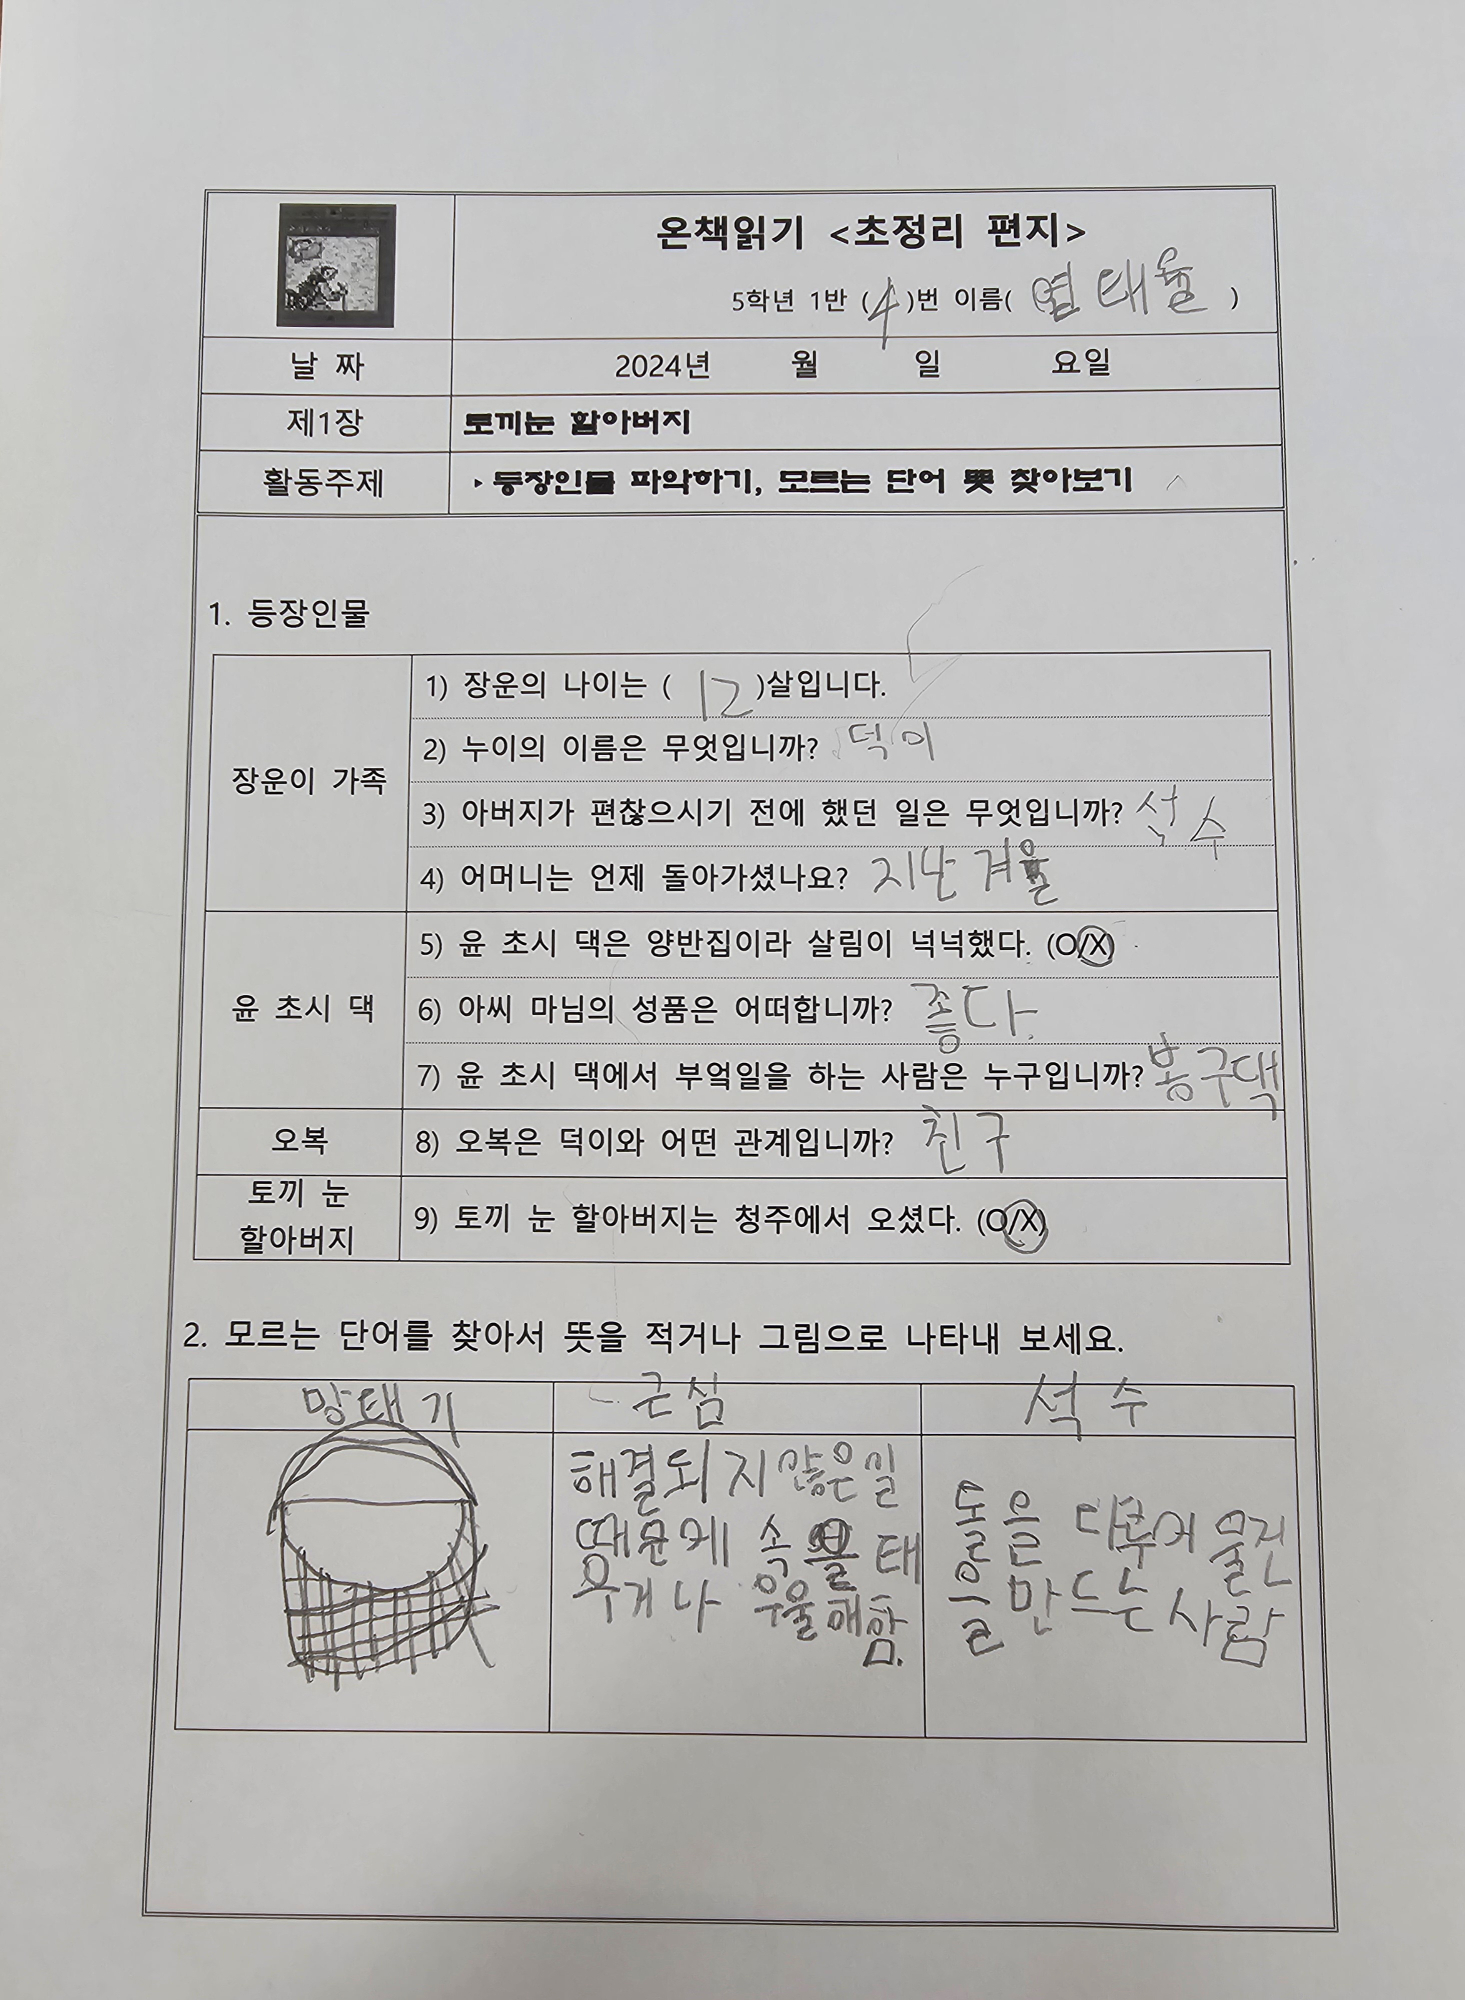 온책읽기 <초정리 편지>
5학년 1반 (4)번 이름( 염태율 )
날 짜 2024년 월 일 요일
제1장 토끼눈 할아버지
활동주제 ▸등장인물 파악하기, 모르는 단어 뜻 찾아보기
1. 등장인물
장운이 가족
1) 장운의 나이는 ( 12 )살입니다.
2) 누이의 이름은 무엇입니까? 덕이
3) 아버지가 편찮으시기 전에 했던 일은 무엇입니까? 석수
4) 어머니는 언제 돌아가셨나요? 지난 겨울
윤 초시 댁
5) 윤 초시 댁은 양반집이라 살림이 넉넉했다. (O/X)
6) 아씨 마님의 성품은 어떠합니까? 좋다.
7) 윤 초시 댁에서 부엌일을 하는 사람은 누구입니까? 봉구댁
오복
8) 오복은 덕이와 어떤 관계입니까? 친구
토끼 눈
할아버지
9) 토끼 눈 할아버지는 청주에서 오셨다. (O/X)
2. 모르는 단어를 찾아서 뜻을 적거나 그림으로 나타내 보세요.
망태기 근심 석수
해결되지 않은 일
때문에 속을 태
우거나 우울해함.
돌을 다루어 물건
을 만드는 사람